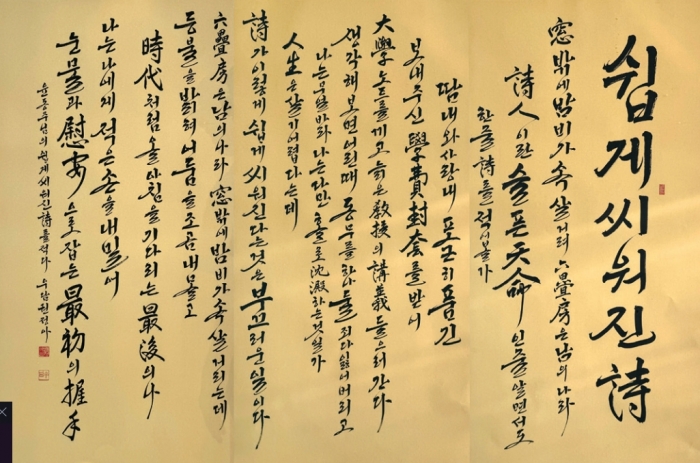 쉽게 씨워진 詩
窓밖에 밤비가 속살거려 六疊房은 남의 나라
詩人이란 슬픈 天命인 줄 알면서도
한 줄 詩를 적어볼가
땀내와 사랑내 포근히 품긴
보내주신 學費封套를 받어
大學 노트를 끼고 늙은 敎授의 講義 들으러 간다
생각해보면 어린 때 동무를 하나 둘 죄다 잃어버리고
나는 무얼 바라 나는 다만 홀로 沈澱하는 것일가
人生은 살기 어렵다는데
詩가 이렇게 쉽게 씨워진다는 것은 부끄러운 일이다
六疊房은 남의 나라 窓밖에 밤비가 속살거리는데
등불을 밝혀 어둠을 조곰 내몰고
時代처럼 올 아침을 기다리는 最後의 나
나는 나에게 적은 손을 내밀어
눈물과 慰安으로 잡는 最初의 握手
윤동주님의 쉽게 씨워진 詩를 적다